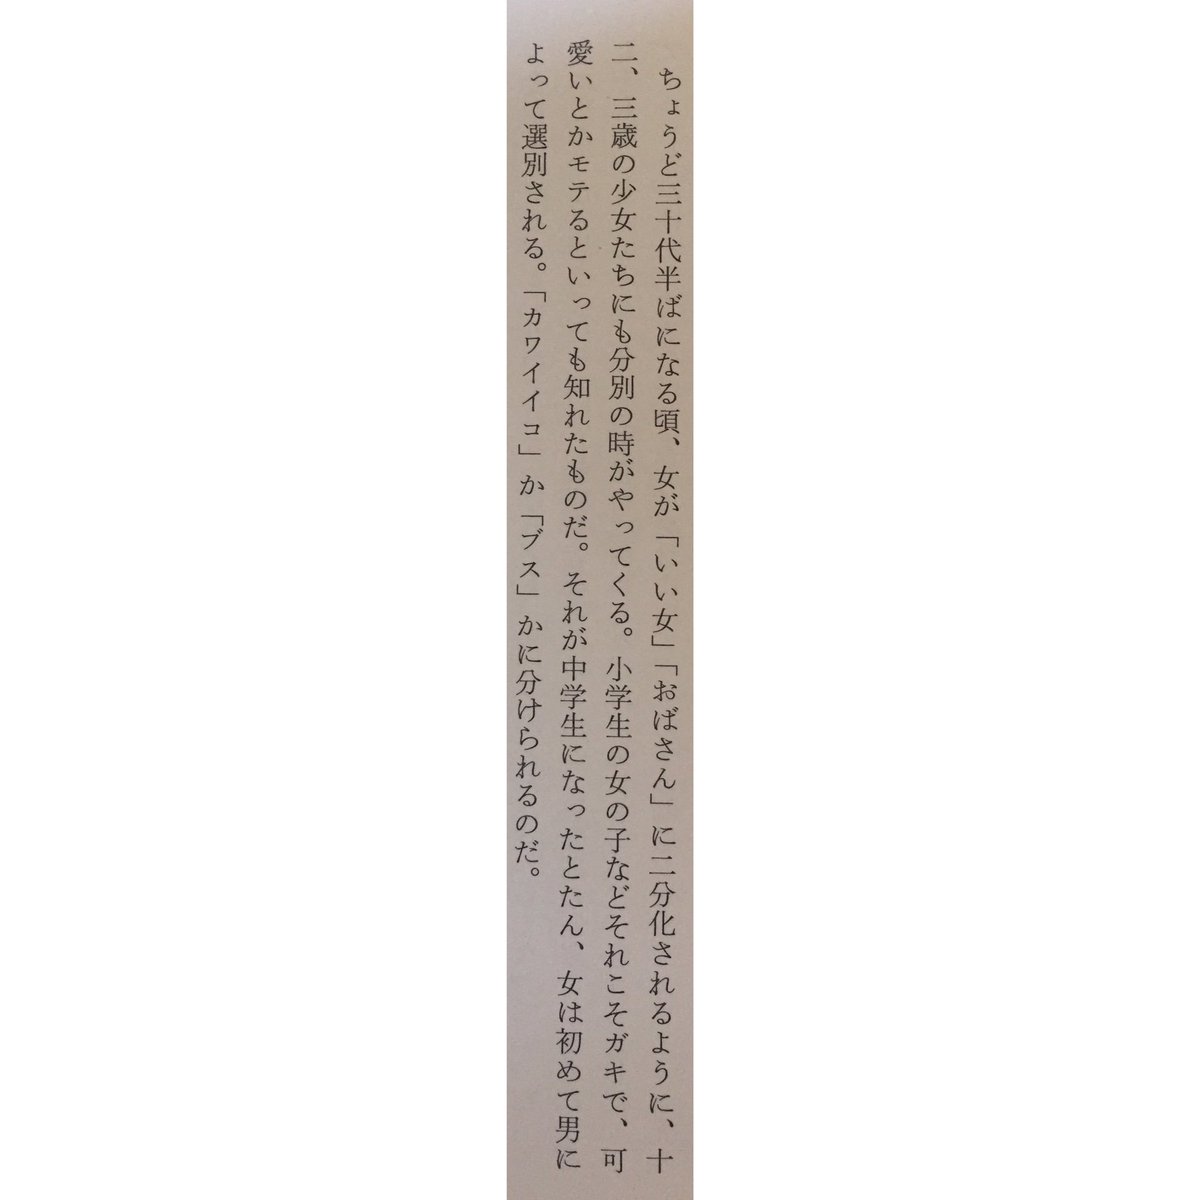 ちょうど三十代半ばになる頃、女が「いい女」「おばさん」に二分化されるように、十
二、三歳の少女たちにも分別の時がやってくる。小学生の女の子などそれこそガキで、可
愛いとかモテるといっても知れたものだ。それが中学生になったとたん、女は初めて男に
よって選別される。「カワイイコ」か「ブス」かに分けられるのだ。